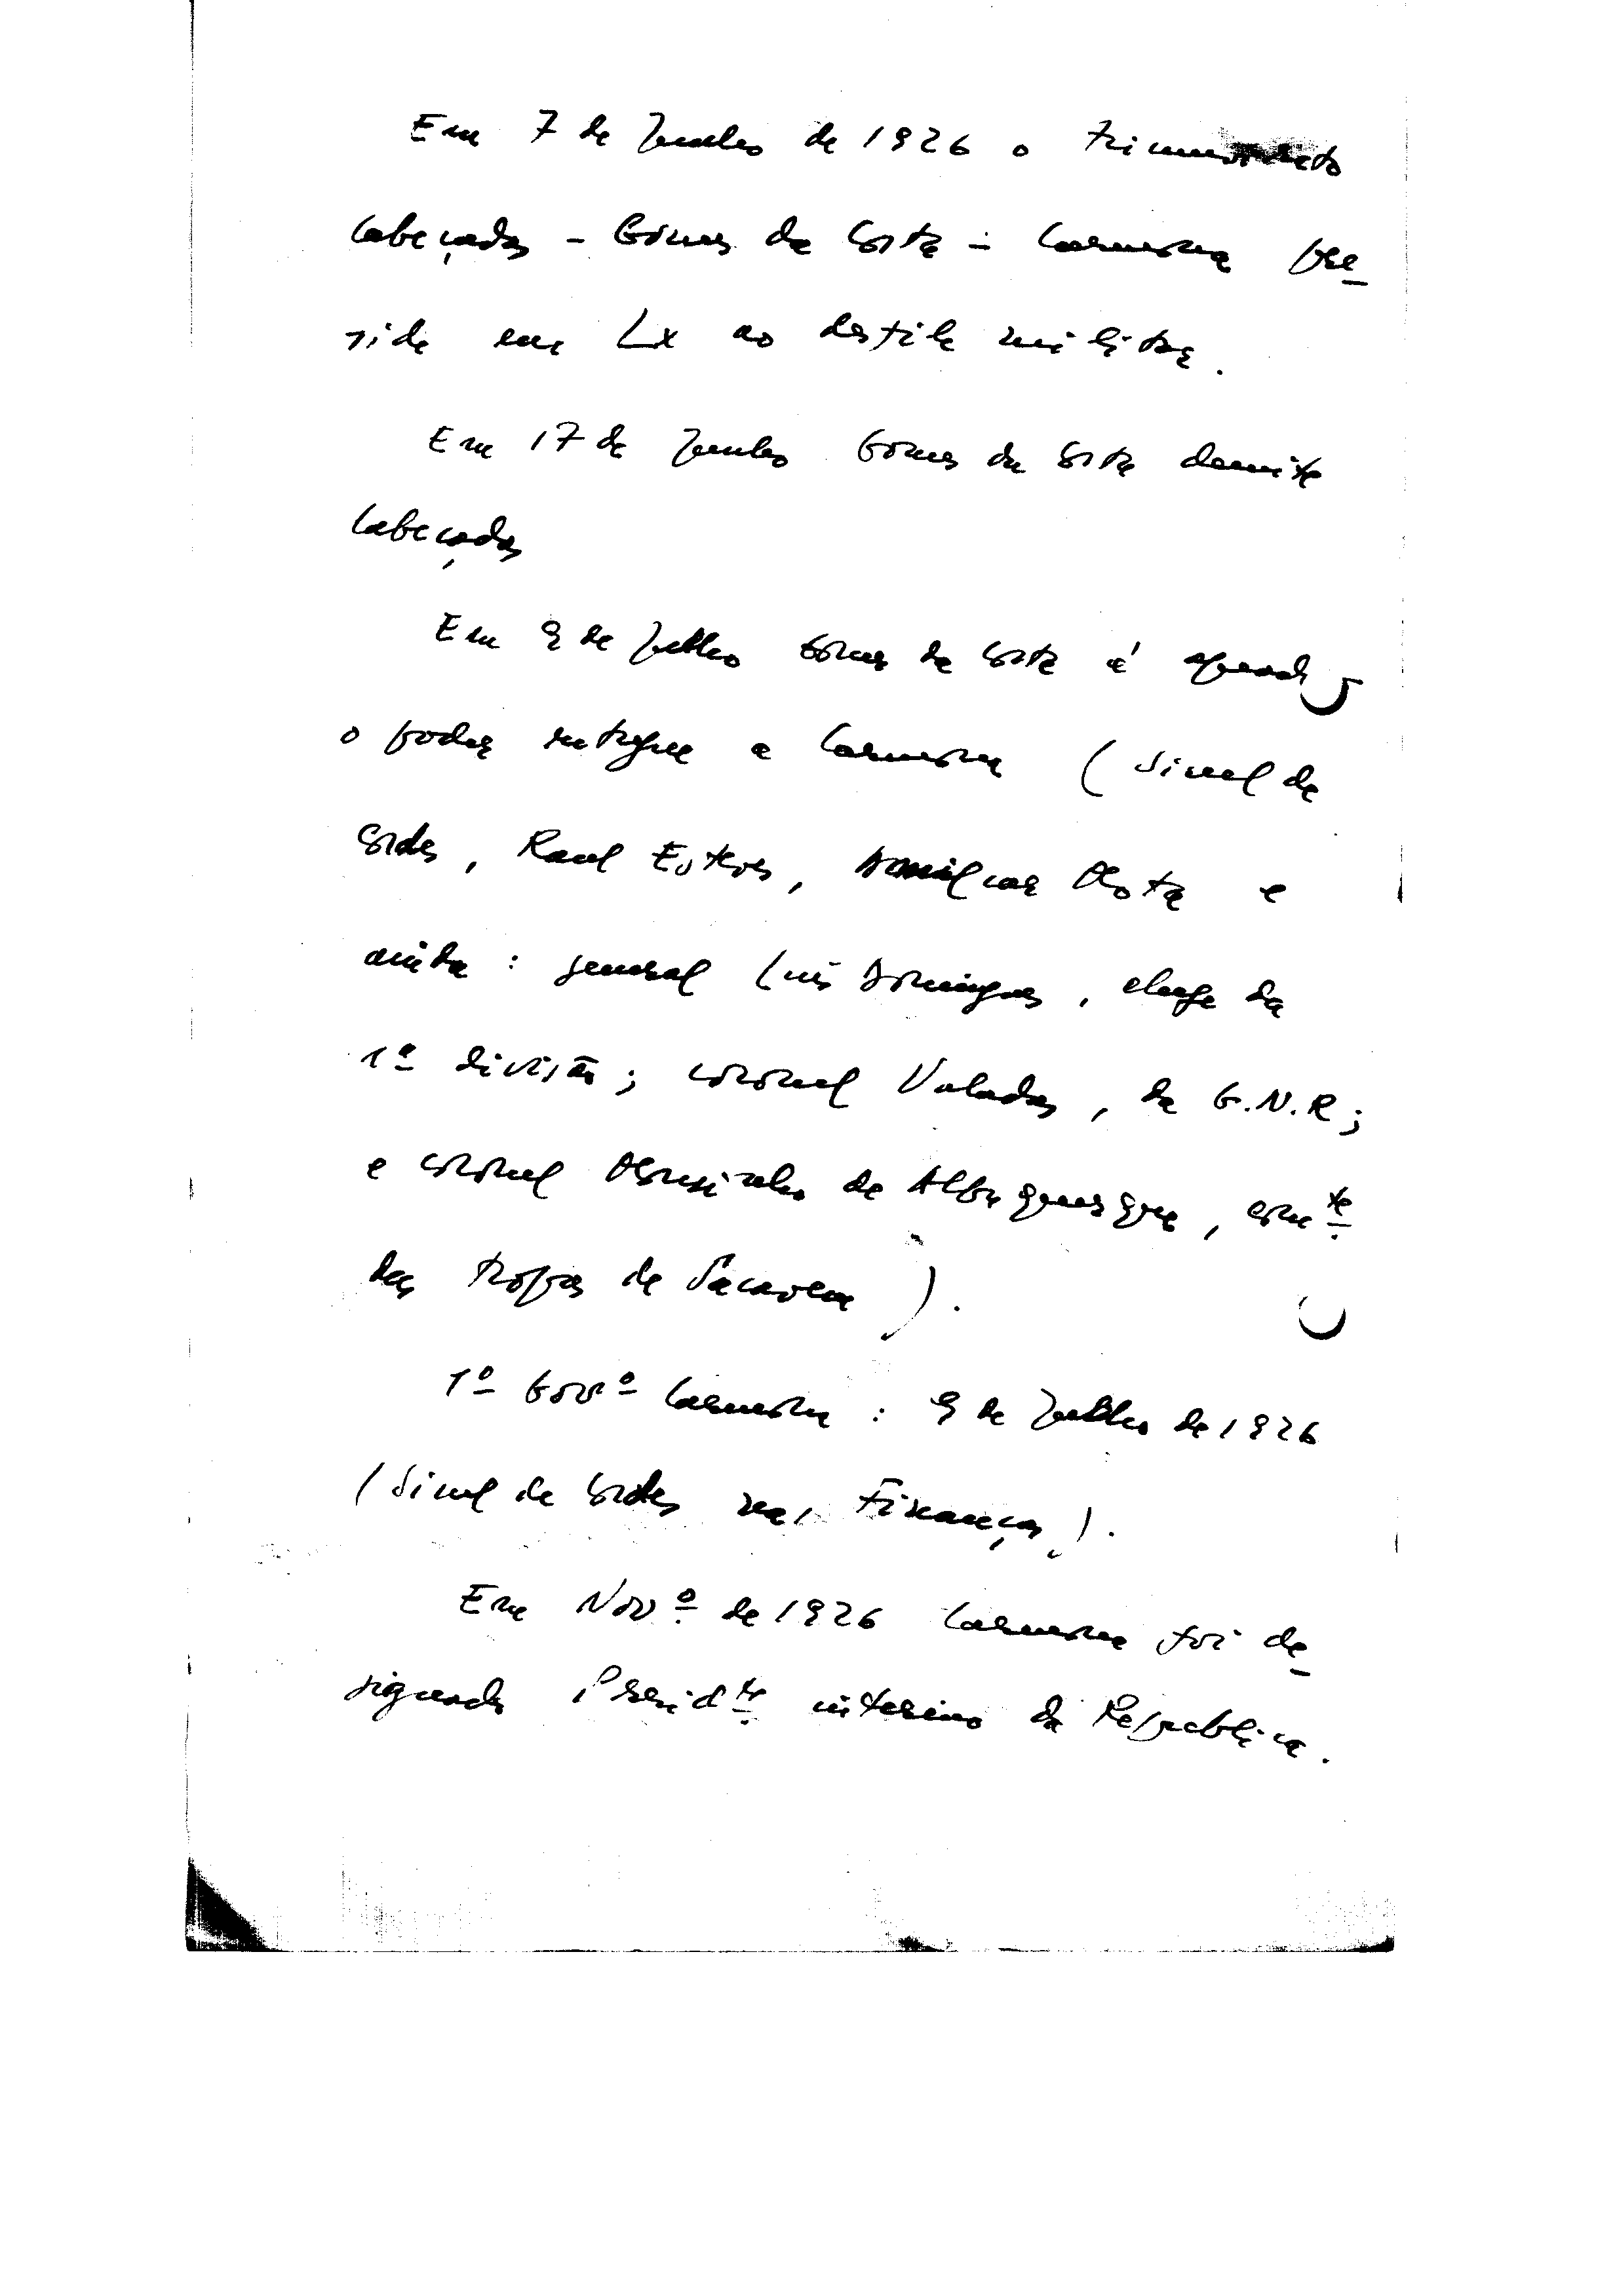 Em 7 de Junho de 1926 o triunvirato
Cabeçadas - Gomes da Costa - Carmona pre-
side em Lx ao desfile militar.
Em 17 de Junho Gomes da Costa demite
Cabeçadas
Em 9 de Julho Gomes da Costa é apeado
o poder entregue a Carmona (Sinel de
Cordes, Raul Esteves, Amilcar Mota e
ainda: general Luís Domingues, chefe da
1ª divisão; coronel Valadas, da G.N.R;
e coronel de Albuquerque, comte
das tropas de Sacavem).
1º Govº Carmona: 9 de Julho de 1926
(Sinel de Cordes nas Finanças).
Em Novº de 1926 Carmona foi de-
signado Presidte interino da República.